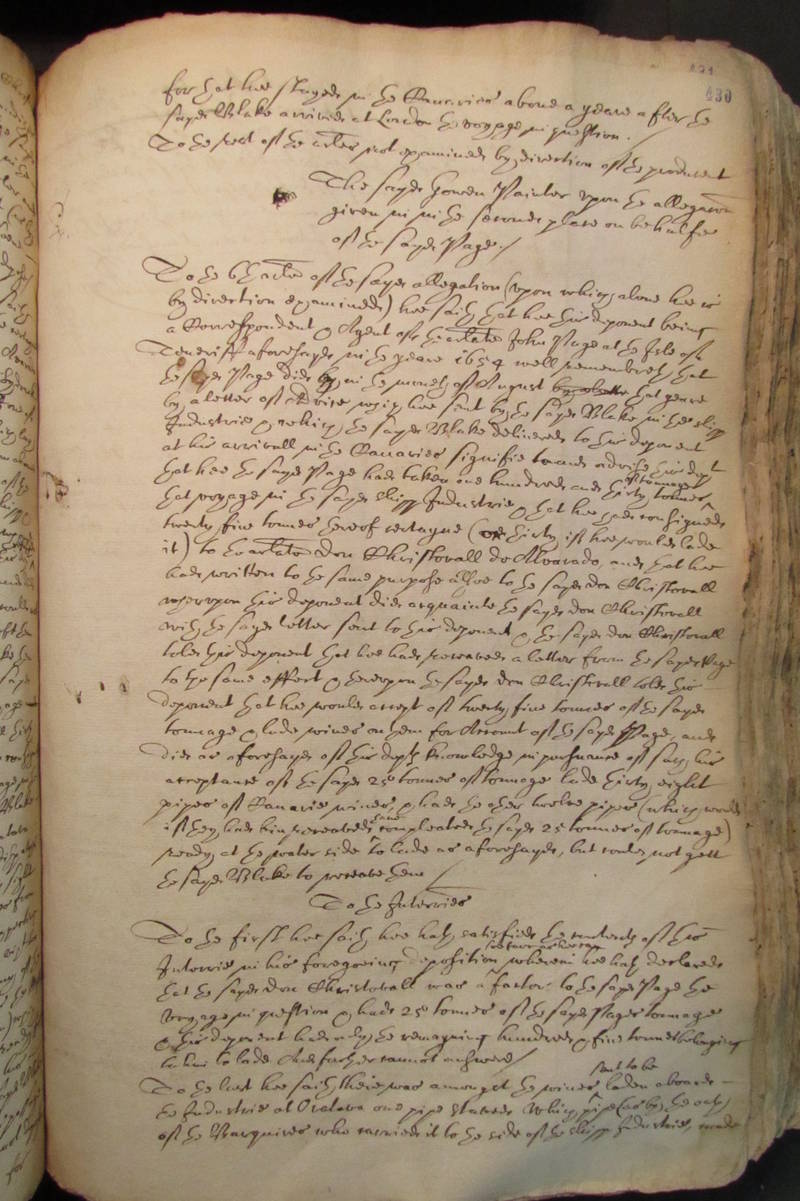 431
430
for that hee stayed in the Canaries above a yeare after the
sayd Blake arrived at London the voyage in question.
To the rest of the arles not examined by direction of the producent
The sayd Gowen Painter upon the allegation
given in in the second place on behalfe
of the sayd Page./
To the 6th arle of the sayd allegation (upon which alone hee is
by direction examined) hee saith that hee this deponent being
a Correspondent & Agent of the arlate John Page at the Isle of
Teneriff aforesayd in the yeare 1654 well remembreth that
the sayd Page did by in the moneth of August that yeare
by a letter of Advice which hee sent by the sayd Blake in the shipp
Industrie & which the sayd Blake delivered to this deponent
at his arrivall in the Canaries signifie and advise this dept
that hee the sayd Page had taken one hundred and thirty tonnes
of tonnage
that voyage in the sayd shipp Industrie, & that hee had consigned
twenty five tonnes thereof certayne (or thirty if hee would lade
it) to the arlate Don Christovall de Alvarado, and that hee
had written to the same purpose alsoe to the sayd don Christovall
whereupon this deponent did acquainte the sayd don Christovall
with the sayd letter sent to this deponent & the sayd don Christovall
told this deponent that hee had received a letter from the sayd Page
to the same effect & thereupon the sayd don Christovall told this
deponent that hee would accept of twenty five tonnes of the sayd
tonnage & lade wines on them for Accompt of the sayd Page, and
did as aforesayd of this depts knowledge in pursuance of such his
acceptance of the sayd 25 tonnes of tonnage lade thirty eight
pipes of Canarie wines & had the other twelve pipes (which would
if they had bin received have compleated the sayd 25 tonnes of tonnage)
ready at the water side to lade as aforesayd, but could not gett
the sayd Blake to receave them /
To the Interries
To the first hee saith hee hath satisfied the contents of this
Interrie in his foregoeing deposition wherein hee hath declared
that the sayd don Christovall was a factor to the sayd Page the
voyage in question & had 25 tonnes of the sayd Pages tonnage
& this deponent had only the remayning hundred & five tonnes belonging
to him to lade And further cannot answere /
To the last hee saith there was amongst the wines laden aboard
sent to be
the Industrie at Oratava one pipe staved which pipe (as by the oath
of the Marquires who carried it to the side of the shipp Industrie, made